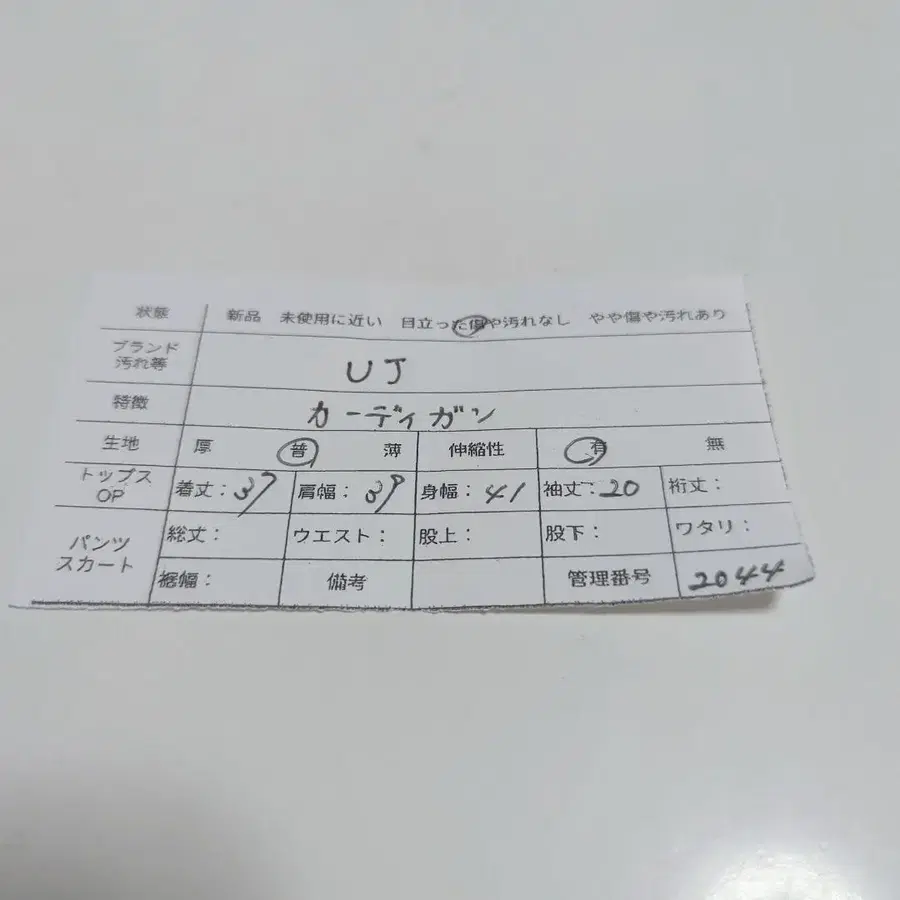 状態 新品 未使用に近い 目立った傷や汚れなし やや傷や汚れあり
ブランド
汚れ等
UJ
特徴 カーディガン
生地 厚 普 薄 伸縮性 有 無
トップス
OP
着丈：37 肩幅：39 身幅：41 袖丈：20 裄丈：
パンツ
スカート
総丈： ウエスト： 股上： 股下： ワタリ：
裾幅： 備考 管理番号 2044